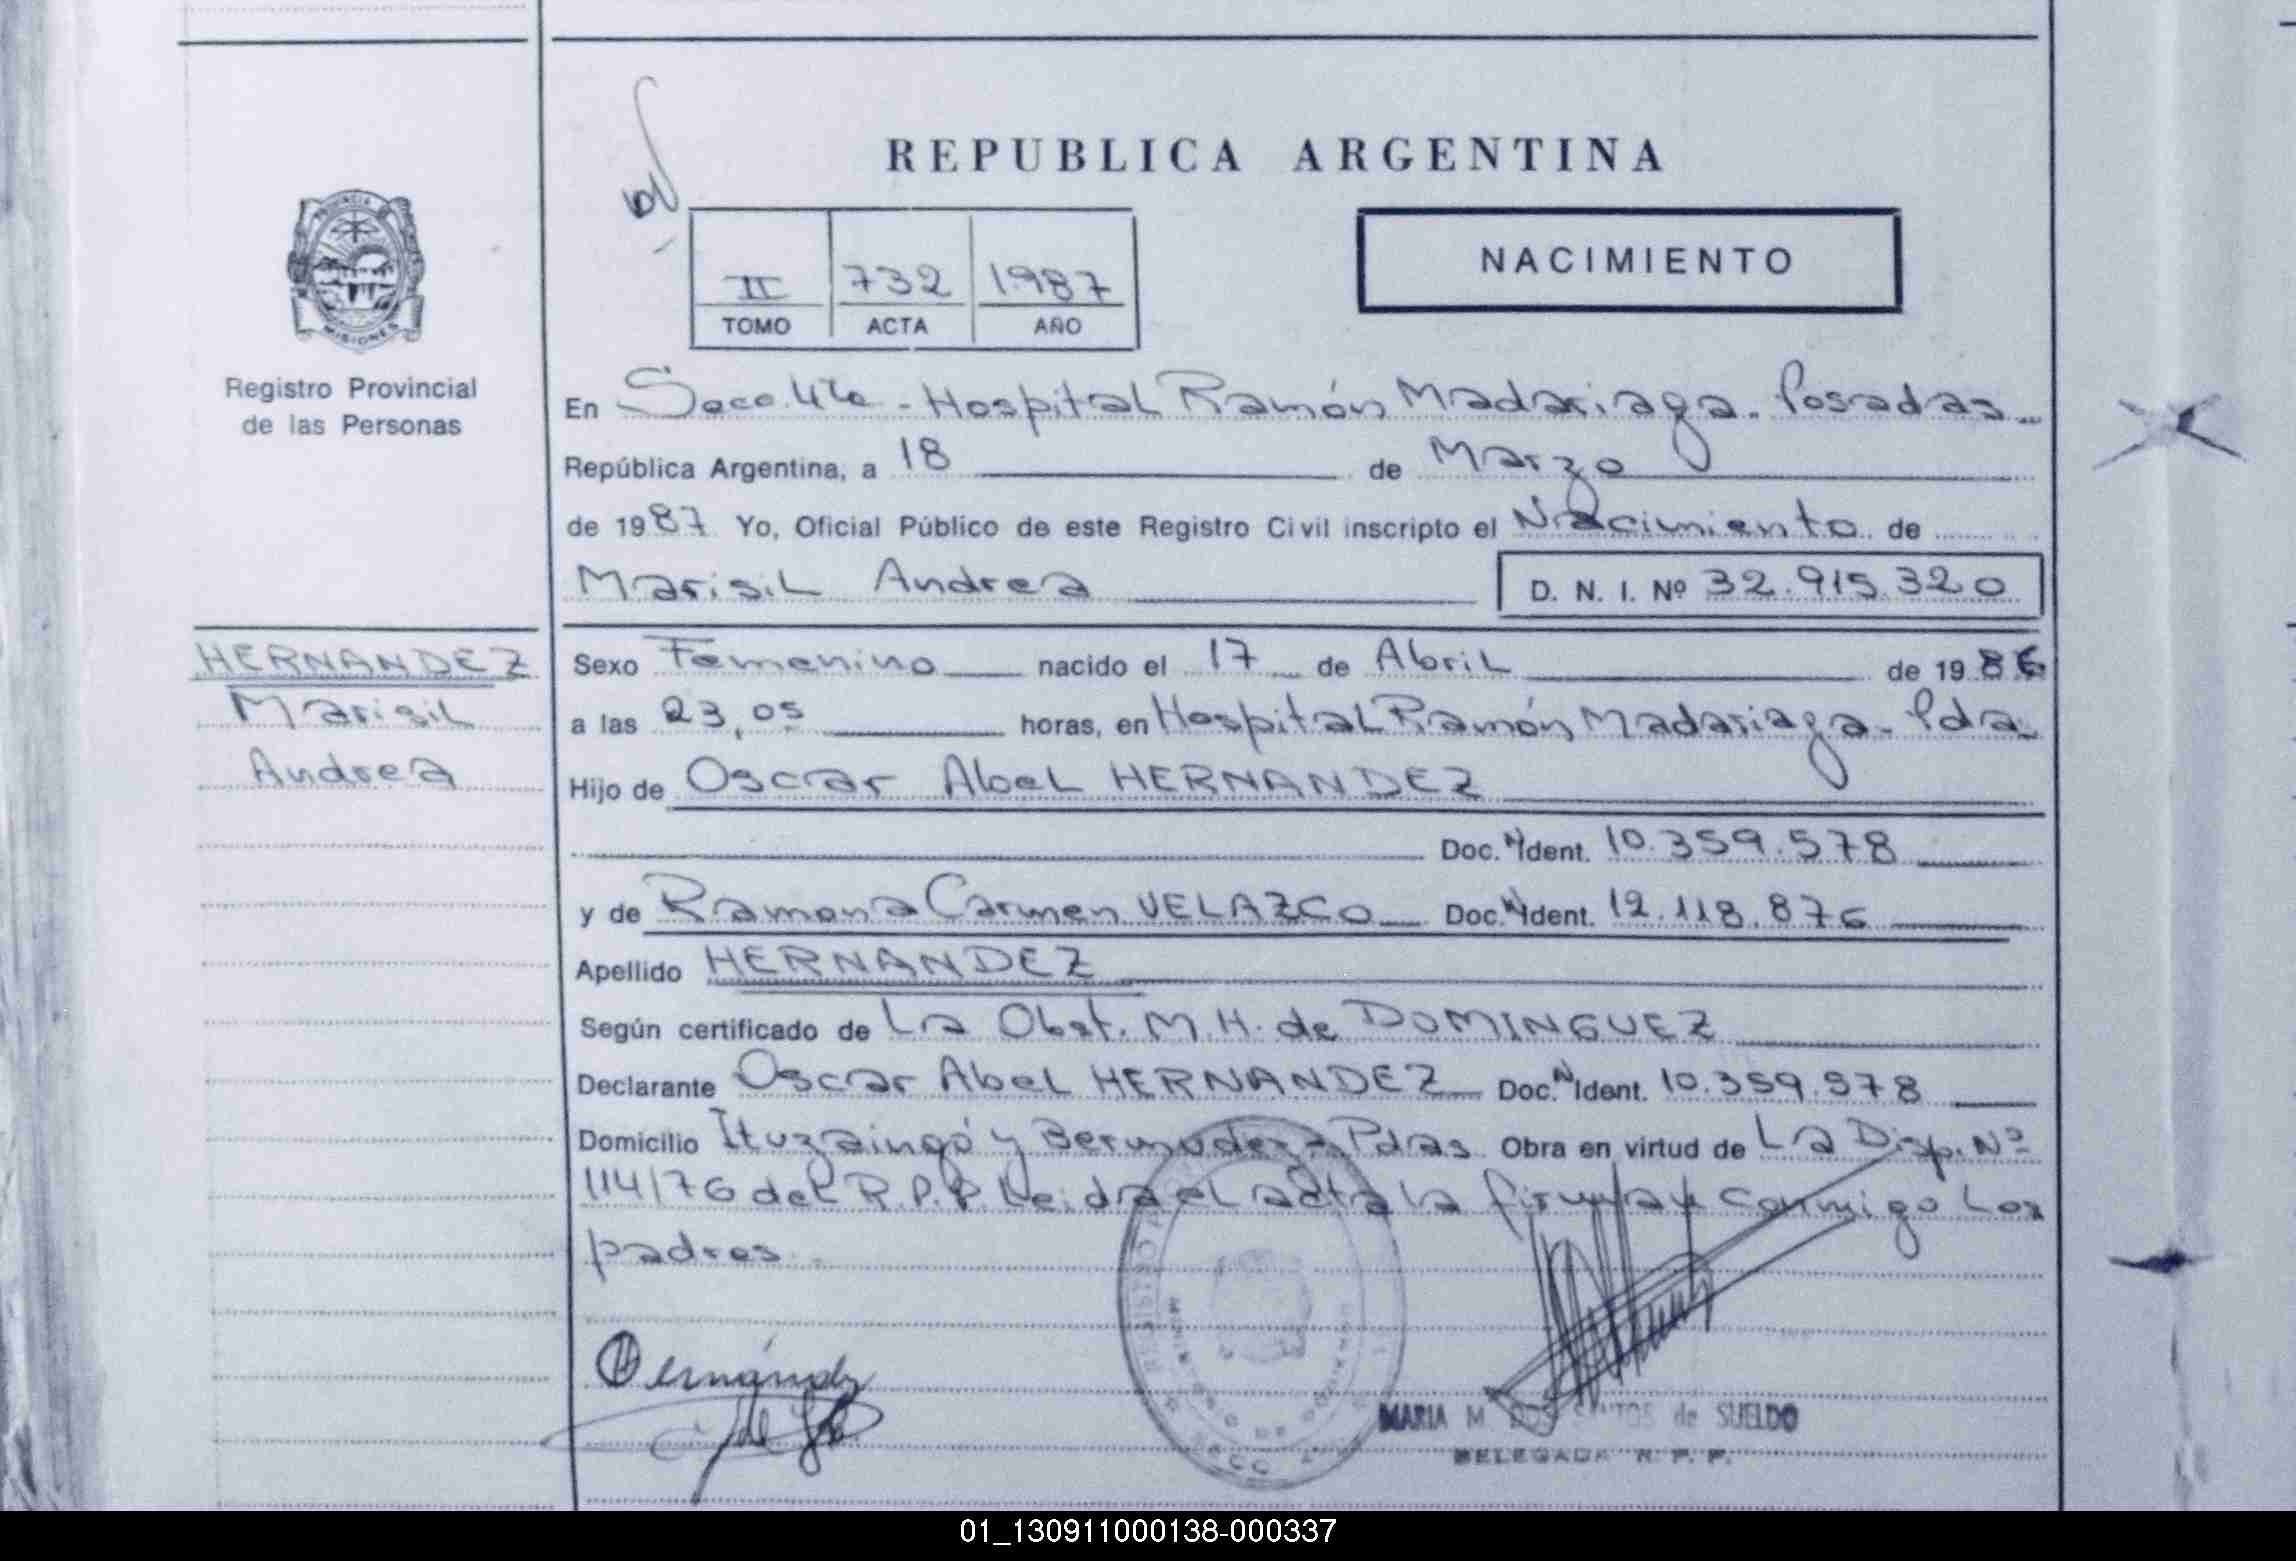 REPUBLICA ARGENTINA
NACIMIENTO
II 732 1987
TOMO ACTA AÑO
PROVINCIA DE
MISIONES
Registro Provincial
de las Personas
En Secc. 4ta - Hospital Ramón Madariaga. Posadas
República Argentina, a 18 de Marzo
de 1987 Yo, Oficial Público de este Registro Civil inscripto el Nacimiento de
Marisil Andrea D. N. I. Nº 32.915.320
HERNANDEZ
Marisil
Andrea
Sexo Femenino nacido el 17 de Abril de 1986
a las 23,05 horas, en Hospital Ramón Madariaga - Pdas
Hijo de Oscar Abel HERNANDEZ
Doc. N Ident. 10.359.578
y de Ramona Carmen VELAZCO Doc. N Ident. 12.118.876
Apellido HERNANDEZ
Según certificado de La Obst. M.H. de DOMINGUEZ
Declarante Oscar Abel HERNANDEZ Doc. N Ident. 10.359.578
Domicilio Ituzaingó y Bermudez - Pdas Obra en virtud de La Disp. Nº
114/76 del R.P.P. Leida el acta la firman conmigo los
padres.
Hernández
MARIA M. DOS SANTOS de SUELDO
DELEGADA R. P. P.
01_130911000138-000337